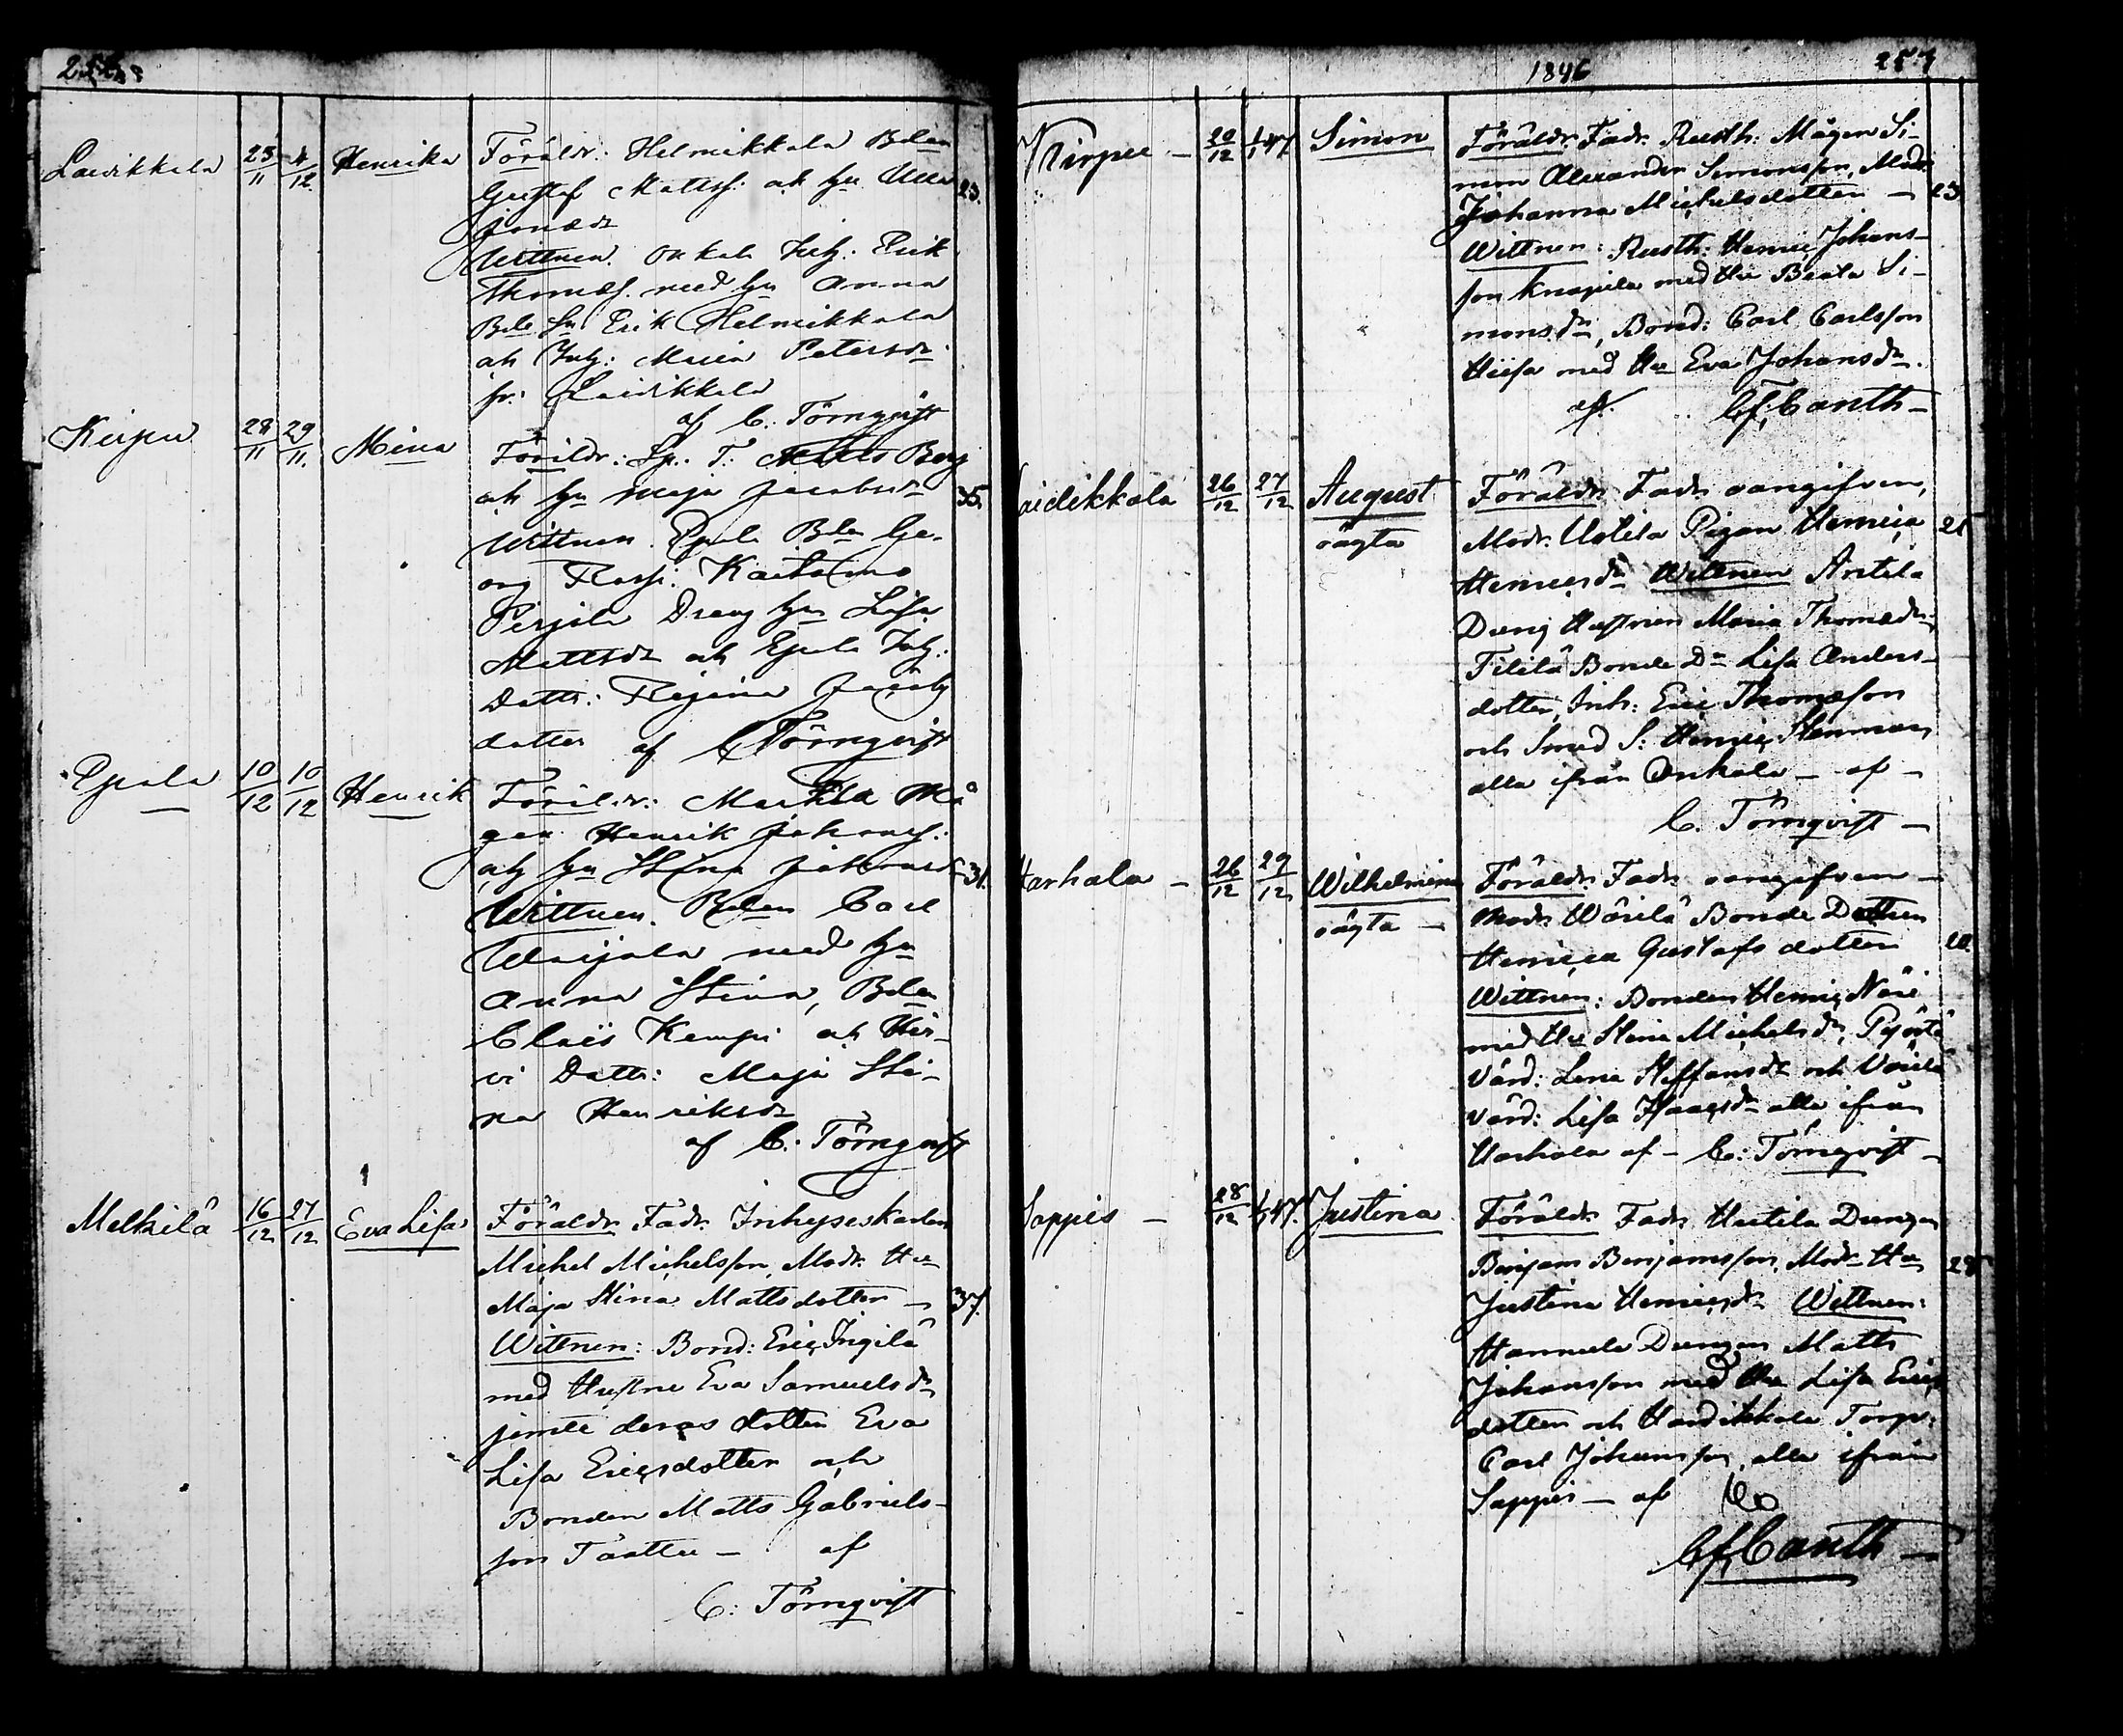 Laidikkala 25/11 4/12 Henrika Föräldr: Helmikkala Bden
Gustaf Mattss: och hu Ulla 23.
Jonædr
Wittnen. Onkala Inh: Erik
Thomæs. med hu Anna
Bde Sn Erik Helmikkala
och Inh: Maria Petersdr
fr: Laidikkala
af C. Törnqvist
Kirpu 28/11 29/11 Mina Föräldr: Sp. T. Matts Berg
och hu Maja Jacobsdr 35.
Wittnen. Epala Bde Ge-
org
Perjila Dreng hu Lisa
Mattsdr och Epala Inh:
Dottr: Regina Jacobs
dotter af C Törnqvist
Epala 10/12 10/12 Henrik Föräldr: Marttila Må
gen Henrik Johans.
och hu Stina Johansd 31.
Wittnen. Bden Carl
Uksjala med hu
Anna Stina, Bden
Claës Kempi och Hir-
vi Dottr: Maja Sti-
na Henriksdr
af C: Törnqvist
Mälkilä 16/12 27/12 Eva Lisa Föräldr Fadr. Inhyseskarlen
Michel Michelsson, Modr. Hu
Maja Stina Mattsdotter – 37.
Wittnen: Bond: Eric Ingilä
med Hustru Eva Samuelsdr
jemte deras dotter Eva
Lisa Ericsdotter och
Bonden Matts Gabriels-
son Täättu – af
C: Törnqvist
1846 257
Kirpu – 20/12 1/1 47 Simon Föräldr. Fadr. Rusth: Mågen Si-
mon Alexander Simonsson, Modr.
Johanna Michelsdotter – 23
Wittnen: Rusth: Henric Johans-
son Knapila med Hu Beata Si-
monsdr, Bond: Carl Carlsson
Hiisa med Hu Eva Johansdr.
af. C. F. Canth –
Laidikkala 26/12 27/12 August Föräldr. Fadr. oangifven,
oägta Modr. Uotila Pigan Henrica 21
Henricsdr Wittnen Antila
Dreng Hustrun Maria Thomædr
Tililä Bonde Dr Lisa Anders-
dotter, Inh: Eric Thomæsson
och Smed S: Henric Stenman
alla ifrån Onkala – af –
C. Törnqvist –
Harhala – 26/12 29/12 Wilhelmina Föräldr. Fadr. oangifven –
oägta – Modr. Wörilä Bonde Dottren
Henrica Gustafsdotter 20.
Wittnen: Bonden Henric Näri
med Hu Stina Michelsdr, Pyörtä
Värd: Lena Steffansdr och Uotila
värd: Lisa Isaacsdr alla ifrån
Harhala af – C: Törnqvist –
Sappis – 28/12 1/1 47. Justina Föräldr. Fadr. Huttila Drengen
Benjam Benjamsson, Modr Hu 28
Justina Henricsdr Wittnen:
Hannula Drengen Matts
Johansson med Hu Lisa Erics
dotter och Haudikkala Torp:
Carl Johansson, alla ifrån
Sappis – af
C. F. Canth –